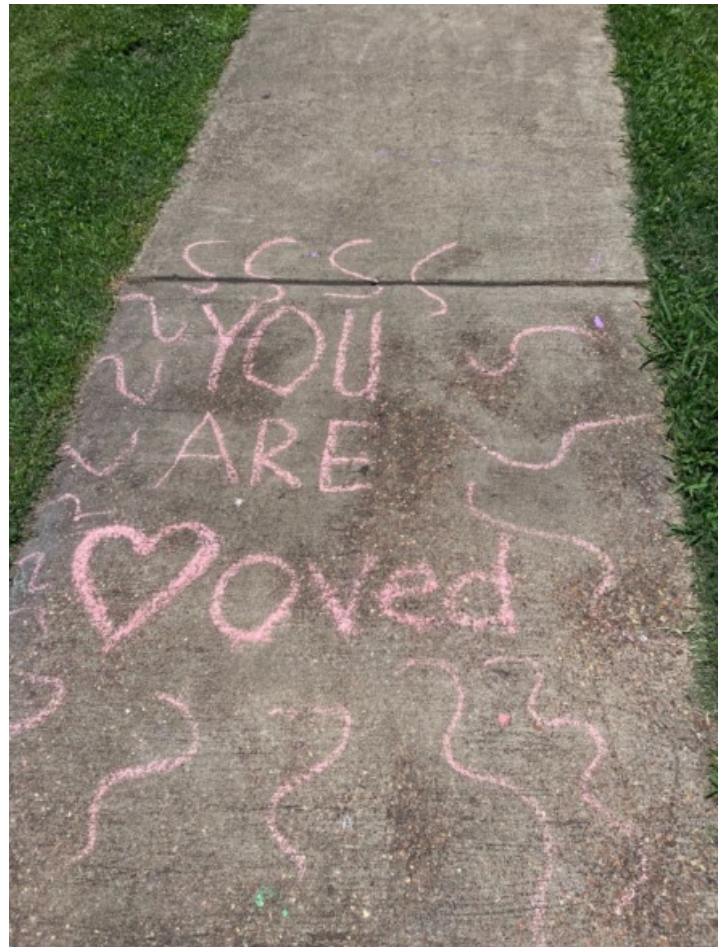 YOU
ARE
♡oved